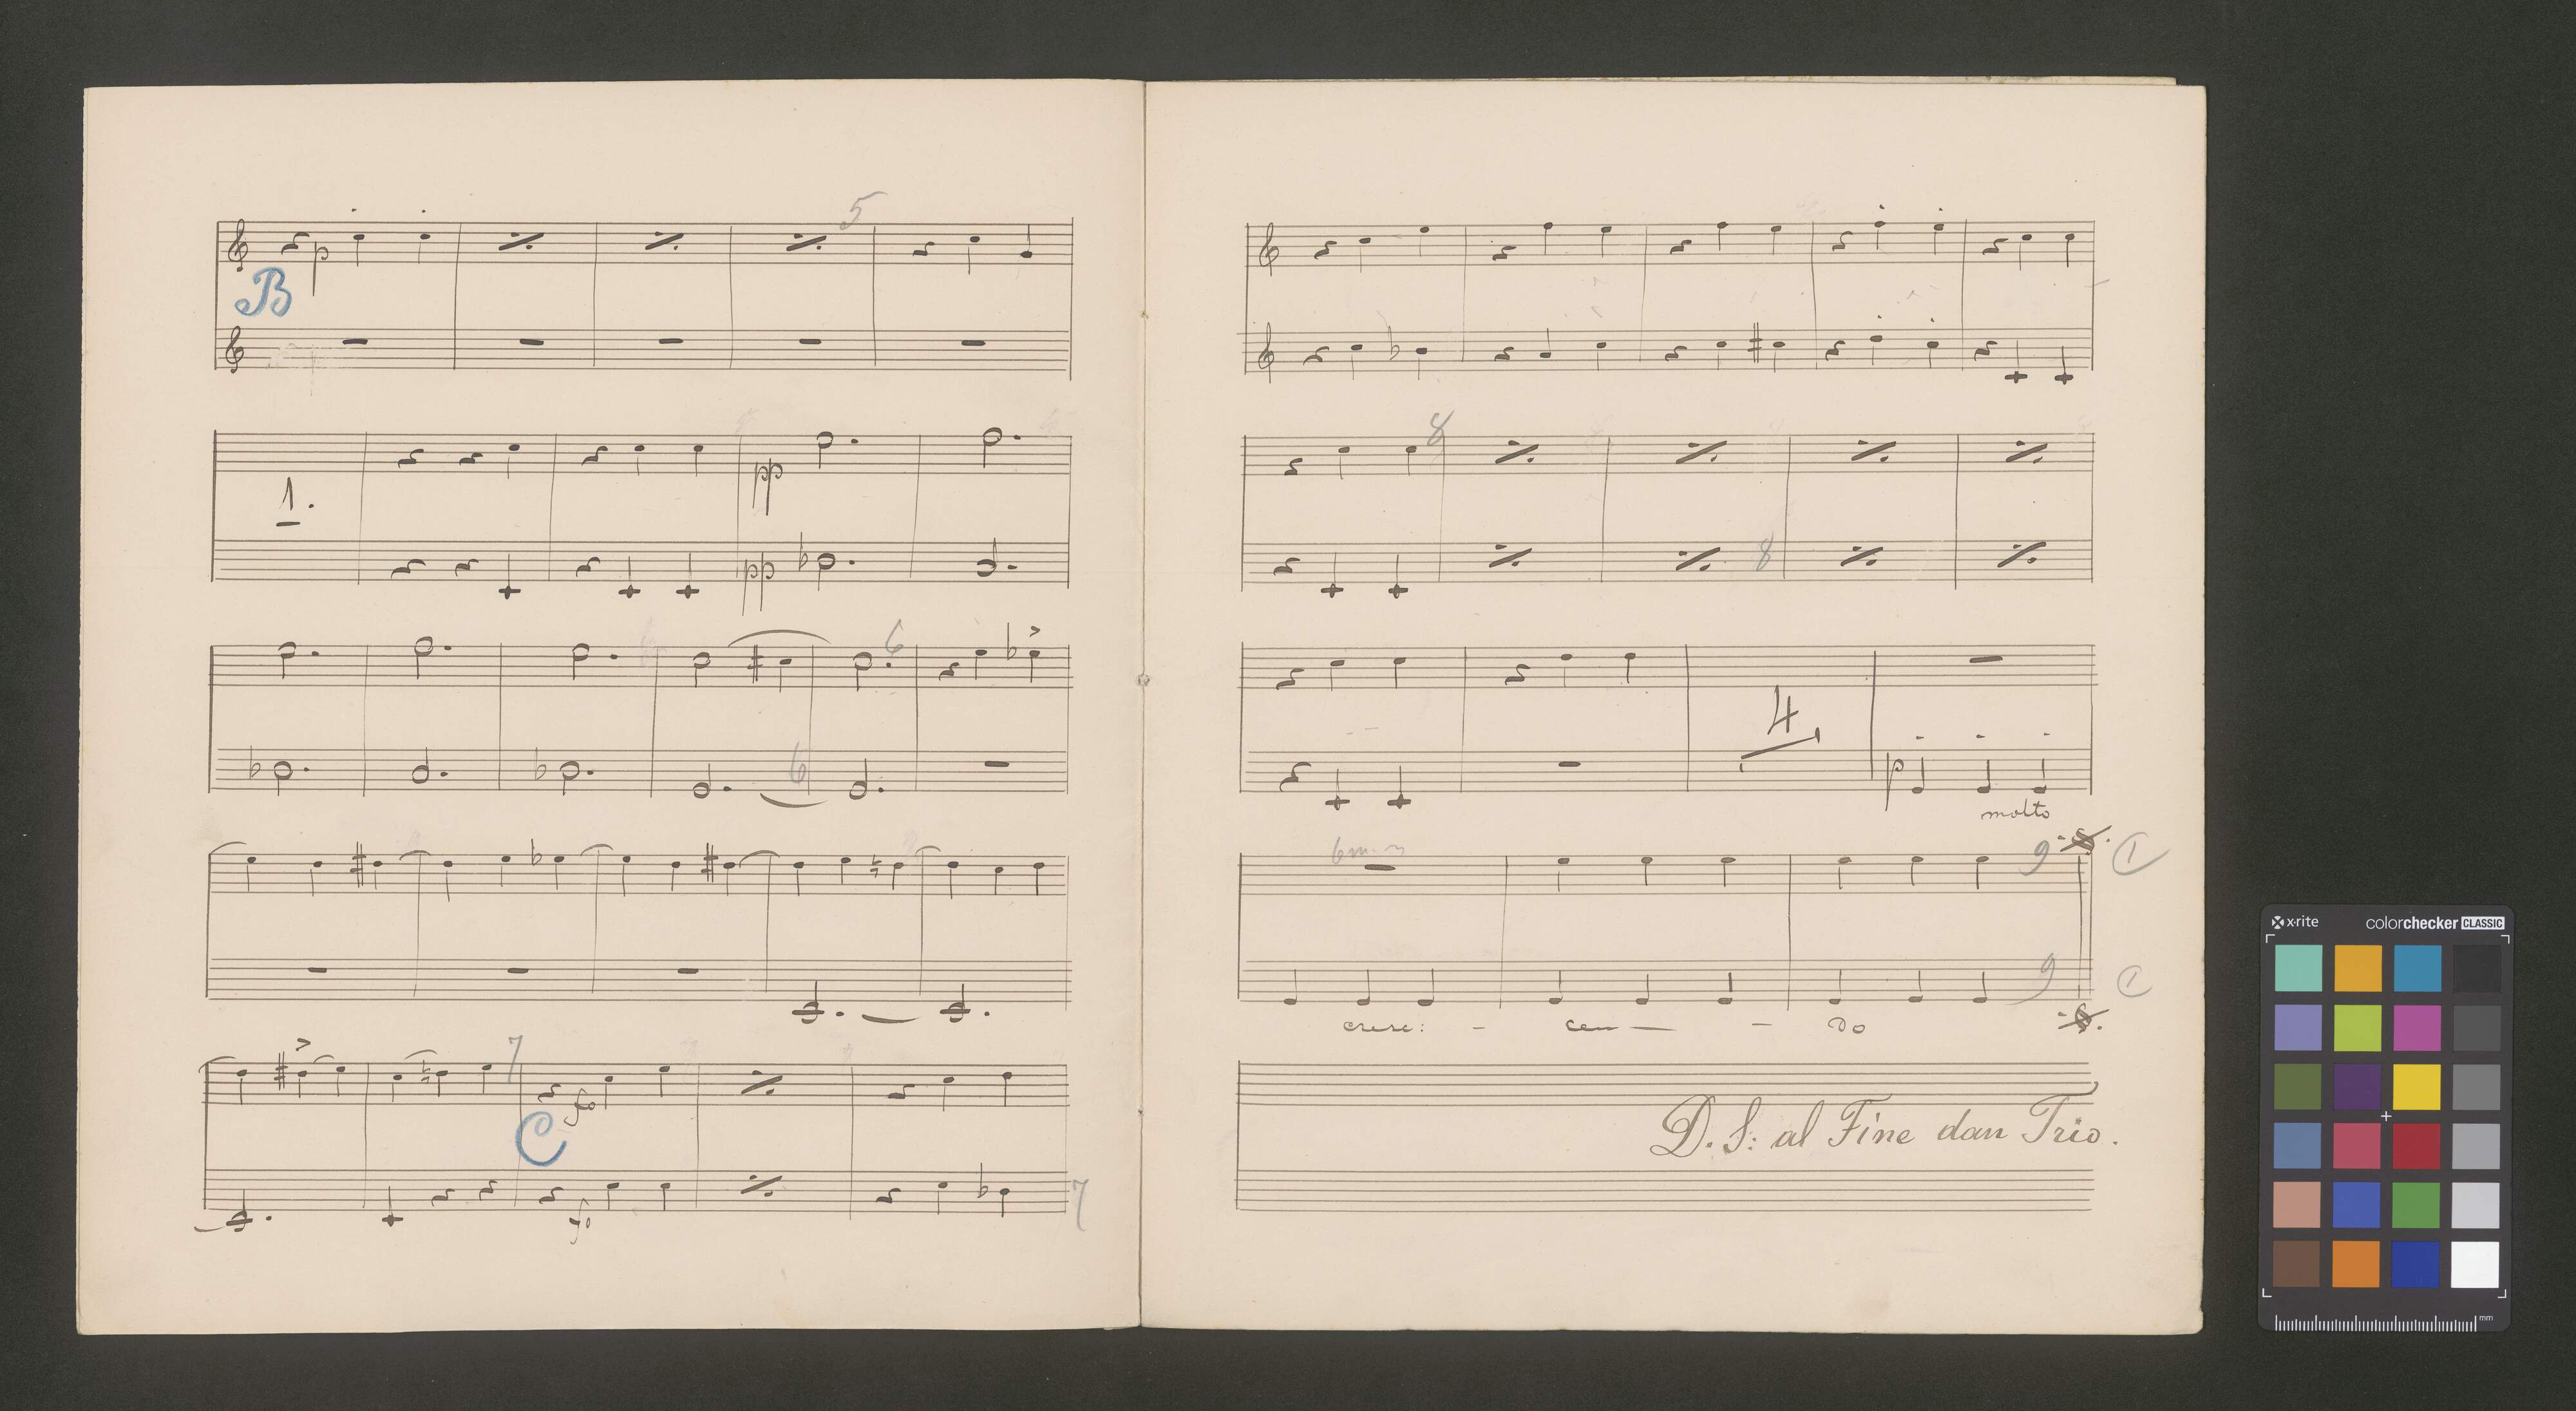 5
p
B
1.
pp
pp
6
6
7
fo
C
fo
7
8
8
4
p
molto
9
1
9
1
cresc: - cen - - do
D. S: al Fine dan Trio.
x-rite colorchecker CLASSIC
mm